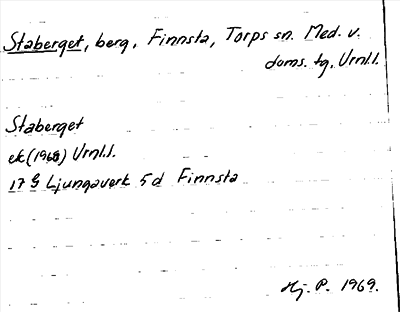 Staberget, berg, Finnsta, Torps sn. Med. v.
doms. tg, Vrnl.l.
Staberget
ek (1968) Vrnl.l.
17 G Ljungaverk 5d Finnsta
Hj. P. 1969.